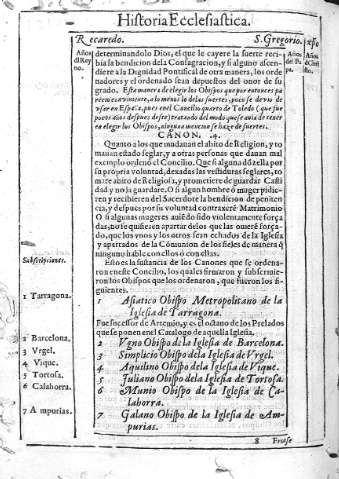 Historia Ecclesiastica.
Recaredo. S. Gregorio. xpo
Años del Reyno.
Años del Papa.
Años de Christo.
determinandolo Dios, el que le cayere la suerte reci-
bia la bendicion de la Consagracion, y si alguno ascen-
diere a la Dignidad Pontifical de otra manera, los orde-
nadores y el ordenado sean depuestos del onor de su
grado. Esta manera de elegir los Obispos que por entonces pa
rece
a lo menos lo de las suertes, poco se devio de
usar en España, pues en el Concilio quarto de Toledo (que fue
pocos años despues deste) tratando del modo que se avia de tener
en elegir los Obispos, ninguna mencion se haze de suertes.
CANON. 4.
Quanto a los que mudanan el abito de Religion, y to
mauan estado seglar, y a otras personas que dauan mal
exemplo ordenó el Concilio. Que si alguna dōzella por
su propria voluntad, dexadas las vestiduras seglares, to
mare abito de Religiosa, y prometiere de guardar Casti
dad y no la guardare. O si algun hombre ó muger pidie-
ren y recibieren del Sacerdote la bendicion de peniten
cia, y despues por su voluntad contraxerē Matrimonio
O si algunas mugeres auiēdo sido violentamente força
das, no se quisieren apartar de los que las ouierē força-
do, que los vnos y los otros sean echados de la Iglesia
y apartados de la Comunion de los fieles de manera q̃
ninguno hable con ellos ó con ellas.
Esto es la sustancia de los Canones que se ordena-
ron en este Concilio, los quales firmaron y subscriuie-
ron los Obispos que los ordenaron, que fueron los si-
guientes.
Subscripciones.
1 Tarragona.
Asiatico Obispo Metropolitano de la
Iglesia de Tarragona.
Fue succesor de Artemio, y es el octauo de los Prelados
que se ponen en el Catalogo de aquella Iglesia.
2 Barcelona.
2 Vgno Obispo de la Iglesia de Barcelona.
3 Vrgel.
3 Simplicio Obispo de la Iglesia de Vrgel.
4 Vique.
4 Aquilino Obispo de la Iglesia de Vique.
5 Tortosa.
5 Juliano Obispo de la Iglesia de Tortosa.
6 Calahorra.
6 Munio Obispo de la Iglesia de Ca-
lahorra.
7 Ampurias.
7 Galano Obispo de la Iglesia de Am-
purias.
8 Froise